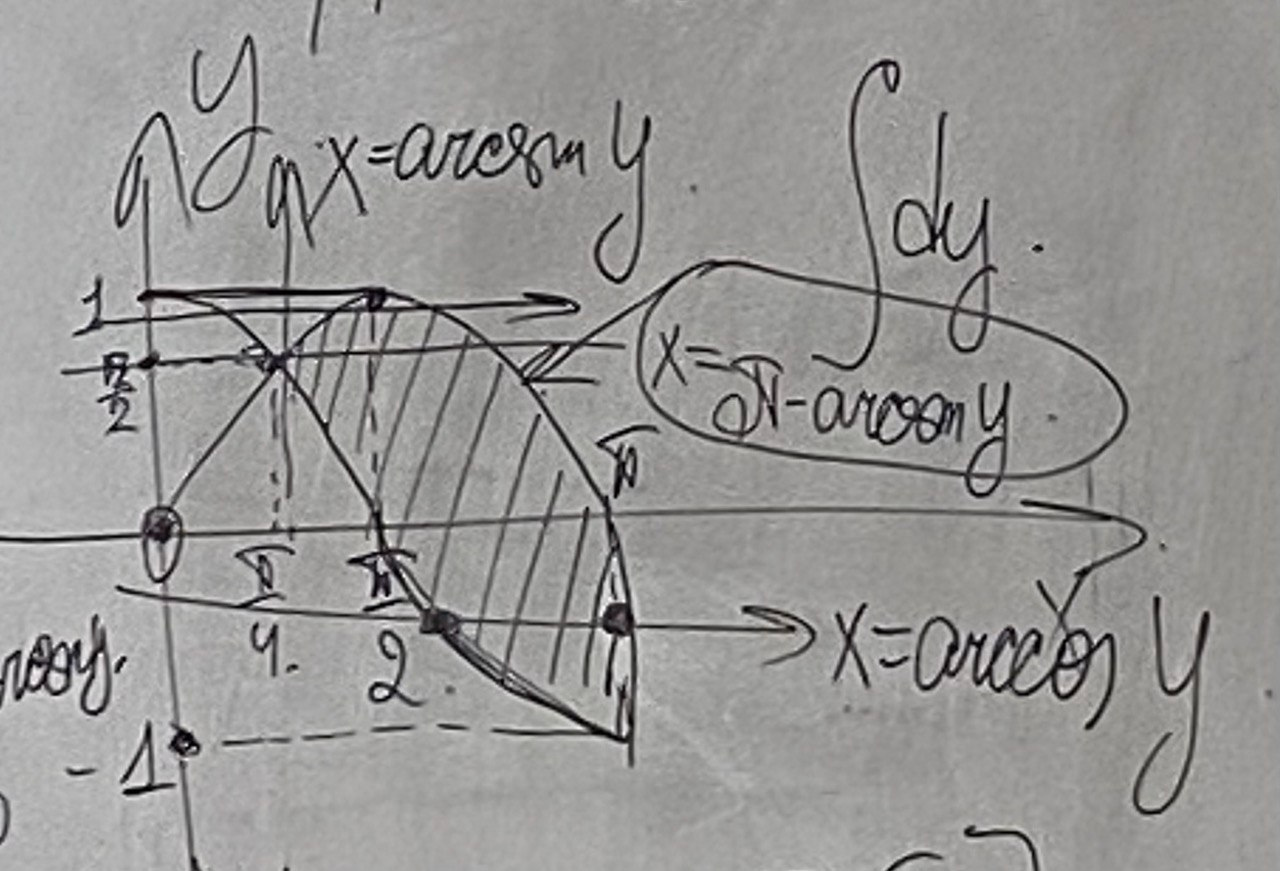 y
x=arcsin y
∫dy.
1
π/2
x=
π-arcsin y
π
0
π/4.
π/2.
x
x=arccos y
-1